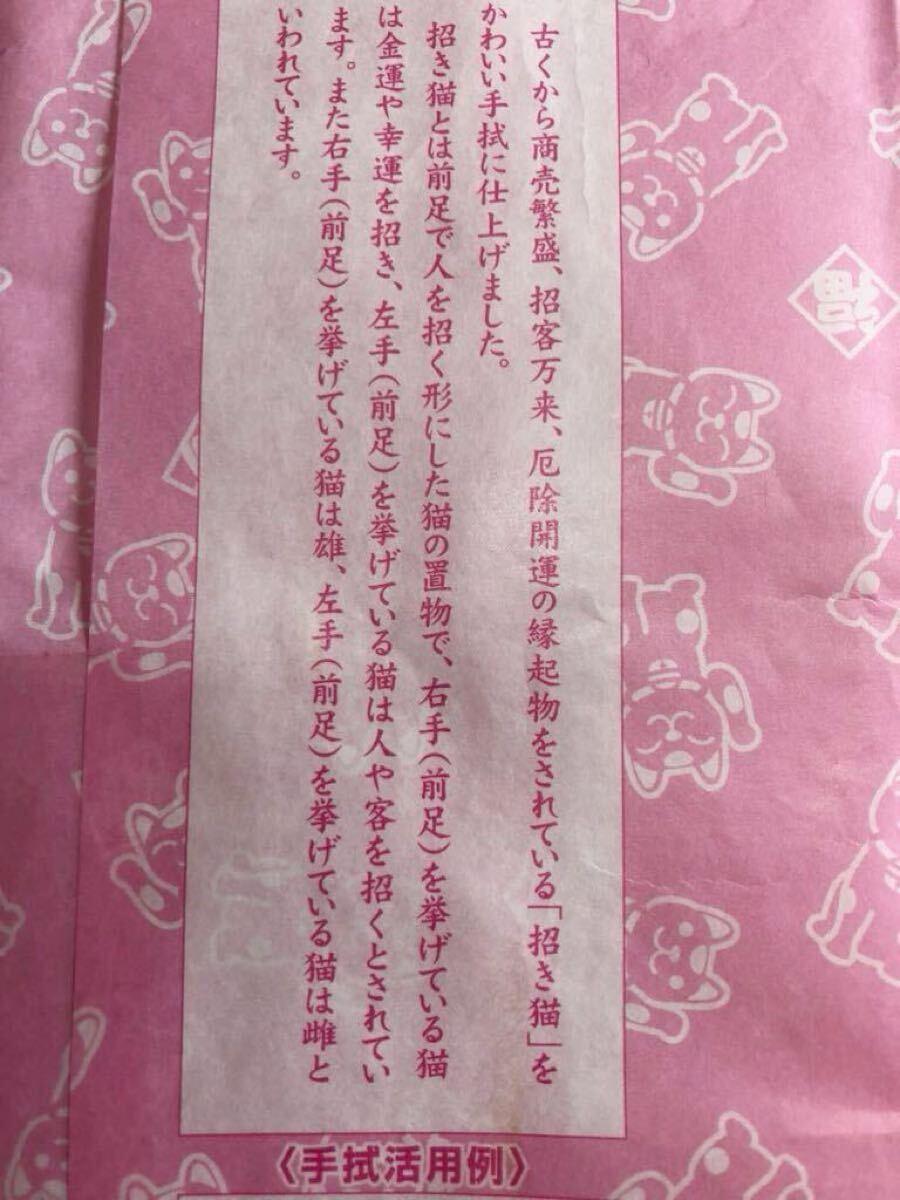 古くから商売繁盛、招客万来、厄除開運の縁起物をされている「招き猫」を
かわいい手拭に仕上げました。
招き猫とは前足で人を招く形にした猫の置物で、右手(前足)を挙げている猫
は金運や幸運を招き、左手(前足)を挙げている猫は人や客を招くとされてい
ます。また右手(前足)を挙げている猫は雄、左手(前足)を挙げている猫は雌と
いわれています。
〈手拭活用例〉
福